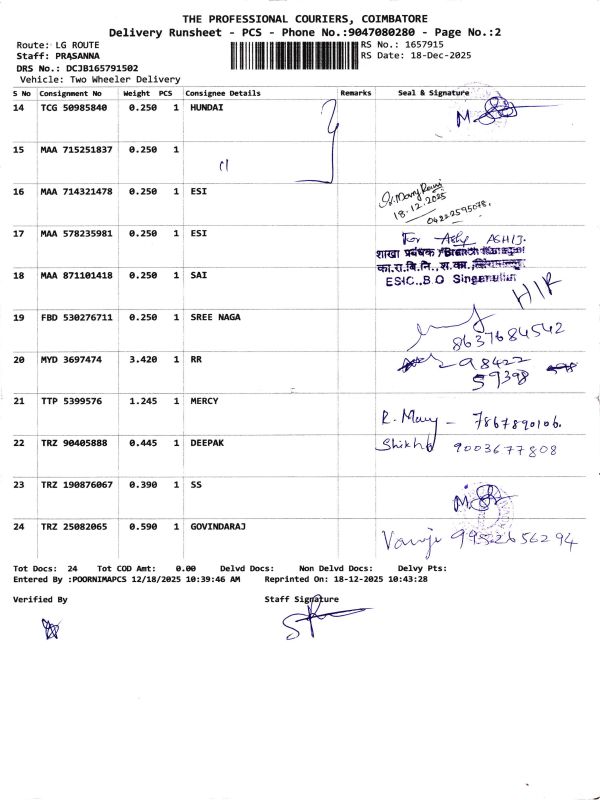 THE PROFESSIONAL COURIERS, COIMBATORE
Delivery Runsheet - PCS - Phone No.:9047080280 - Page No.:2
Route: LG ROUTE RS No.: 1657915
Staff: PRASANNA RS Date: 18-Dec-2025
DRS No.: DCJB165791502
Vehicle: Two Wheeler Delivery
S No Consignment No Weight PCS Consignee Details Remarks Seal & Signature
14 TCG 50985840 0.250 1 HUNDAI
15 MAA 715251837 0.250 1
16 MAA 714321478 0.250 1 ESI
18.12.2025
04222595078.
17 MAA 578235981 0.250 1 ESI For ASHIJ.
शाखा प्रबंधक / Branch
का.रा.बि.नि., स.का.,
18 MAA 871101418 0.250 1 SAI ESIC.,B.O Singanallur
19 FBD 530276711 0.250 1 SREE NAGA 8637684542
20 MYD 3697474 3.420 1 RR 98422
59398
21 TTP 5399576 1.245 1 MERCY R. Mary - 7867890106.
22 TRZ 90405888 0.445 1 DEEPAK Shikha 9003677808
23 TRZ 190876067 0.390 1 SS
24 TRZ 25082065 0.590 1 GOVINDARAJ Vanji 9952656294
Tot Docs: 24 Tot COD Amt: 0.00 Delvd Docs: Non Delvd Docs: Delvy Pts:
Entered By :POORNIMAPCS 12/18/2025 10:39:46 AM Reprinted On: 18-12-2025 10:43:28
Verified By Staff Signature